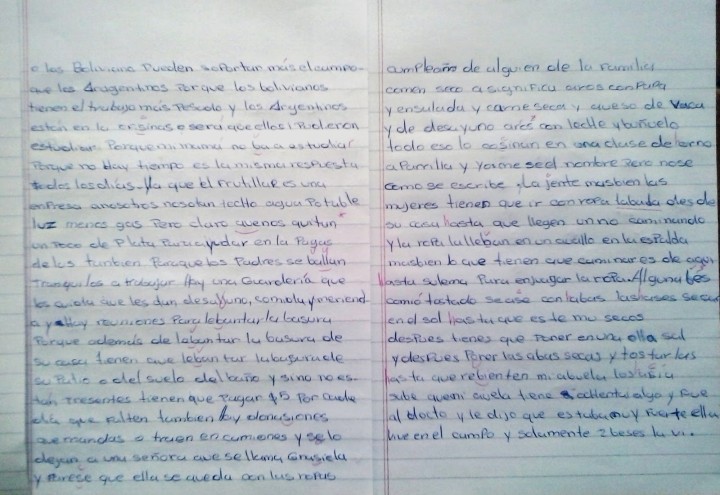 o los Boliviano Pueden soportar más el campo
que los Aragentinos Porque los bolivianos
tienen el trabajo más Pesado y los Argentinos
están en la osea que ellos Pudieron
estudiar Porque mi mamá no ba a estudiar
Porque no hay tiempo es la misma respuesta
todos los días. Ya que el Frutillar es una
enpresa anosotros nos dan techo agua Potable
luz menos gas Pero claro quenos quitan
un Poco de Plata Para ayudar en la Pagas
de los tanbien Paraque los Padres se ballan
Tranquilos a trabajar Hay una Guardería que
les cuida que les dan desayuno, comida y meriend
a y Hay reuniones Para lebantar la basura
Porque además de labantar la basura de
su casa tienen que lebantar la basura de
su Patio o del suelo del baño y si no es-
tan Presentes tienen que Pagar $5 Por cada
día que falten tanbien hay donasiones
que mandas o traen en camiones y se lo
dejan a una señora que se llama Grasiela
y Parese que ella se queda con las ropas
cumpleaño de alguien de la Familia
comen seco a significa aros con Papa
y ensalada y carne seca y queso de Vaca
y de desayuno aros con leche y buñuelo
todo eso lo cosinan en una clase de horno
a Parrilla y Yo me se el nombre Pero nose
como se escribe, La jente masbien las
mujeres tienen que ir con ropa labada desde
su casa hasta que llegen un rio caminando
y la ropa la lleban en un aguallo en la espalda
masbien lo que tienen que caminar es de aqui
hasta salema Para enjuagar la ropa. Alguna bes
comí tostado se ase con abas las ases secar
en el sol hasta que este mu secos
desPues tienes que Poner en una olla sal
y desPues Poner las abas secas y tostarlas
hasta que rebienten mi abuela los
sabe quemi avela tiene ochenta y algo y Fue
al docto y le dijo que estaba muy Fuerte ella
bive en el campo y solamente 2 beses la vi.